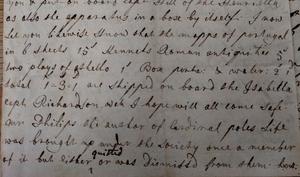 on board Capt Hill of the Henrietta
as also the apparatus in a box by itself. I now
let you likewise know that the mapps of portugal
in 6 sheets 15s Kennets Roman antiquities 5
two plays of othello 1s Box 2
total 1=3: are shipped on board the Isabella
capt Richardson, wch I hope will all come safe
mr Philips the author of Cardinal poles Life
was brought up under the Society once a member
of it but either quitted or was Dismist from them